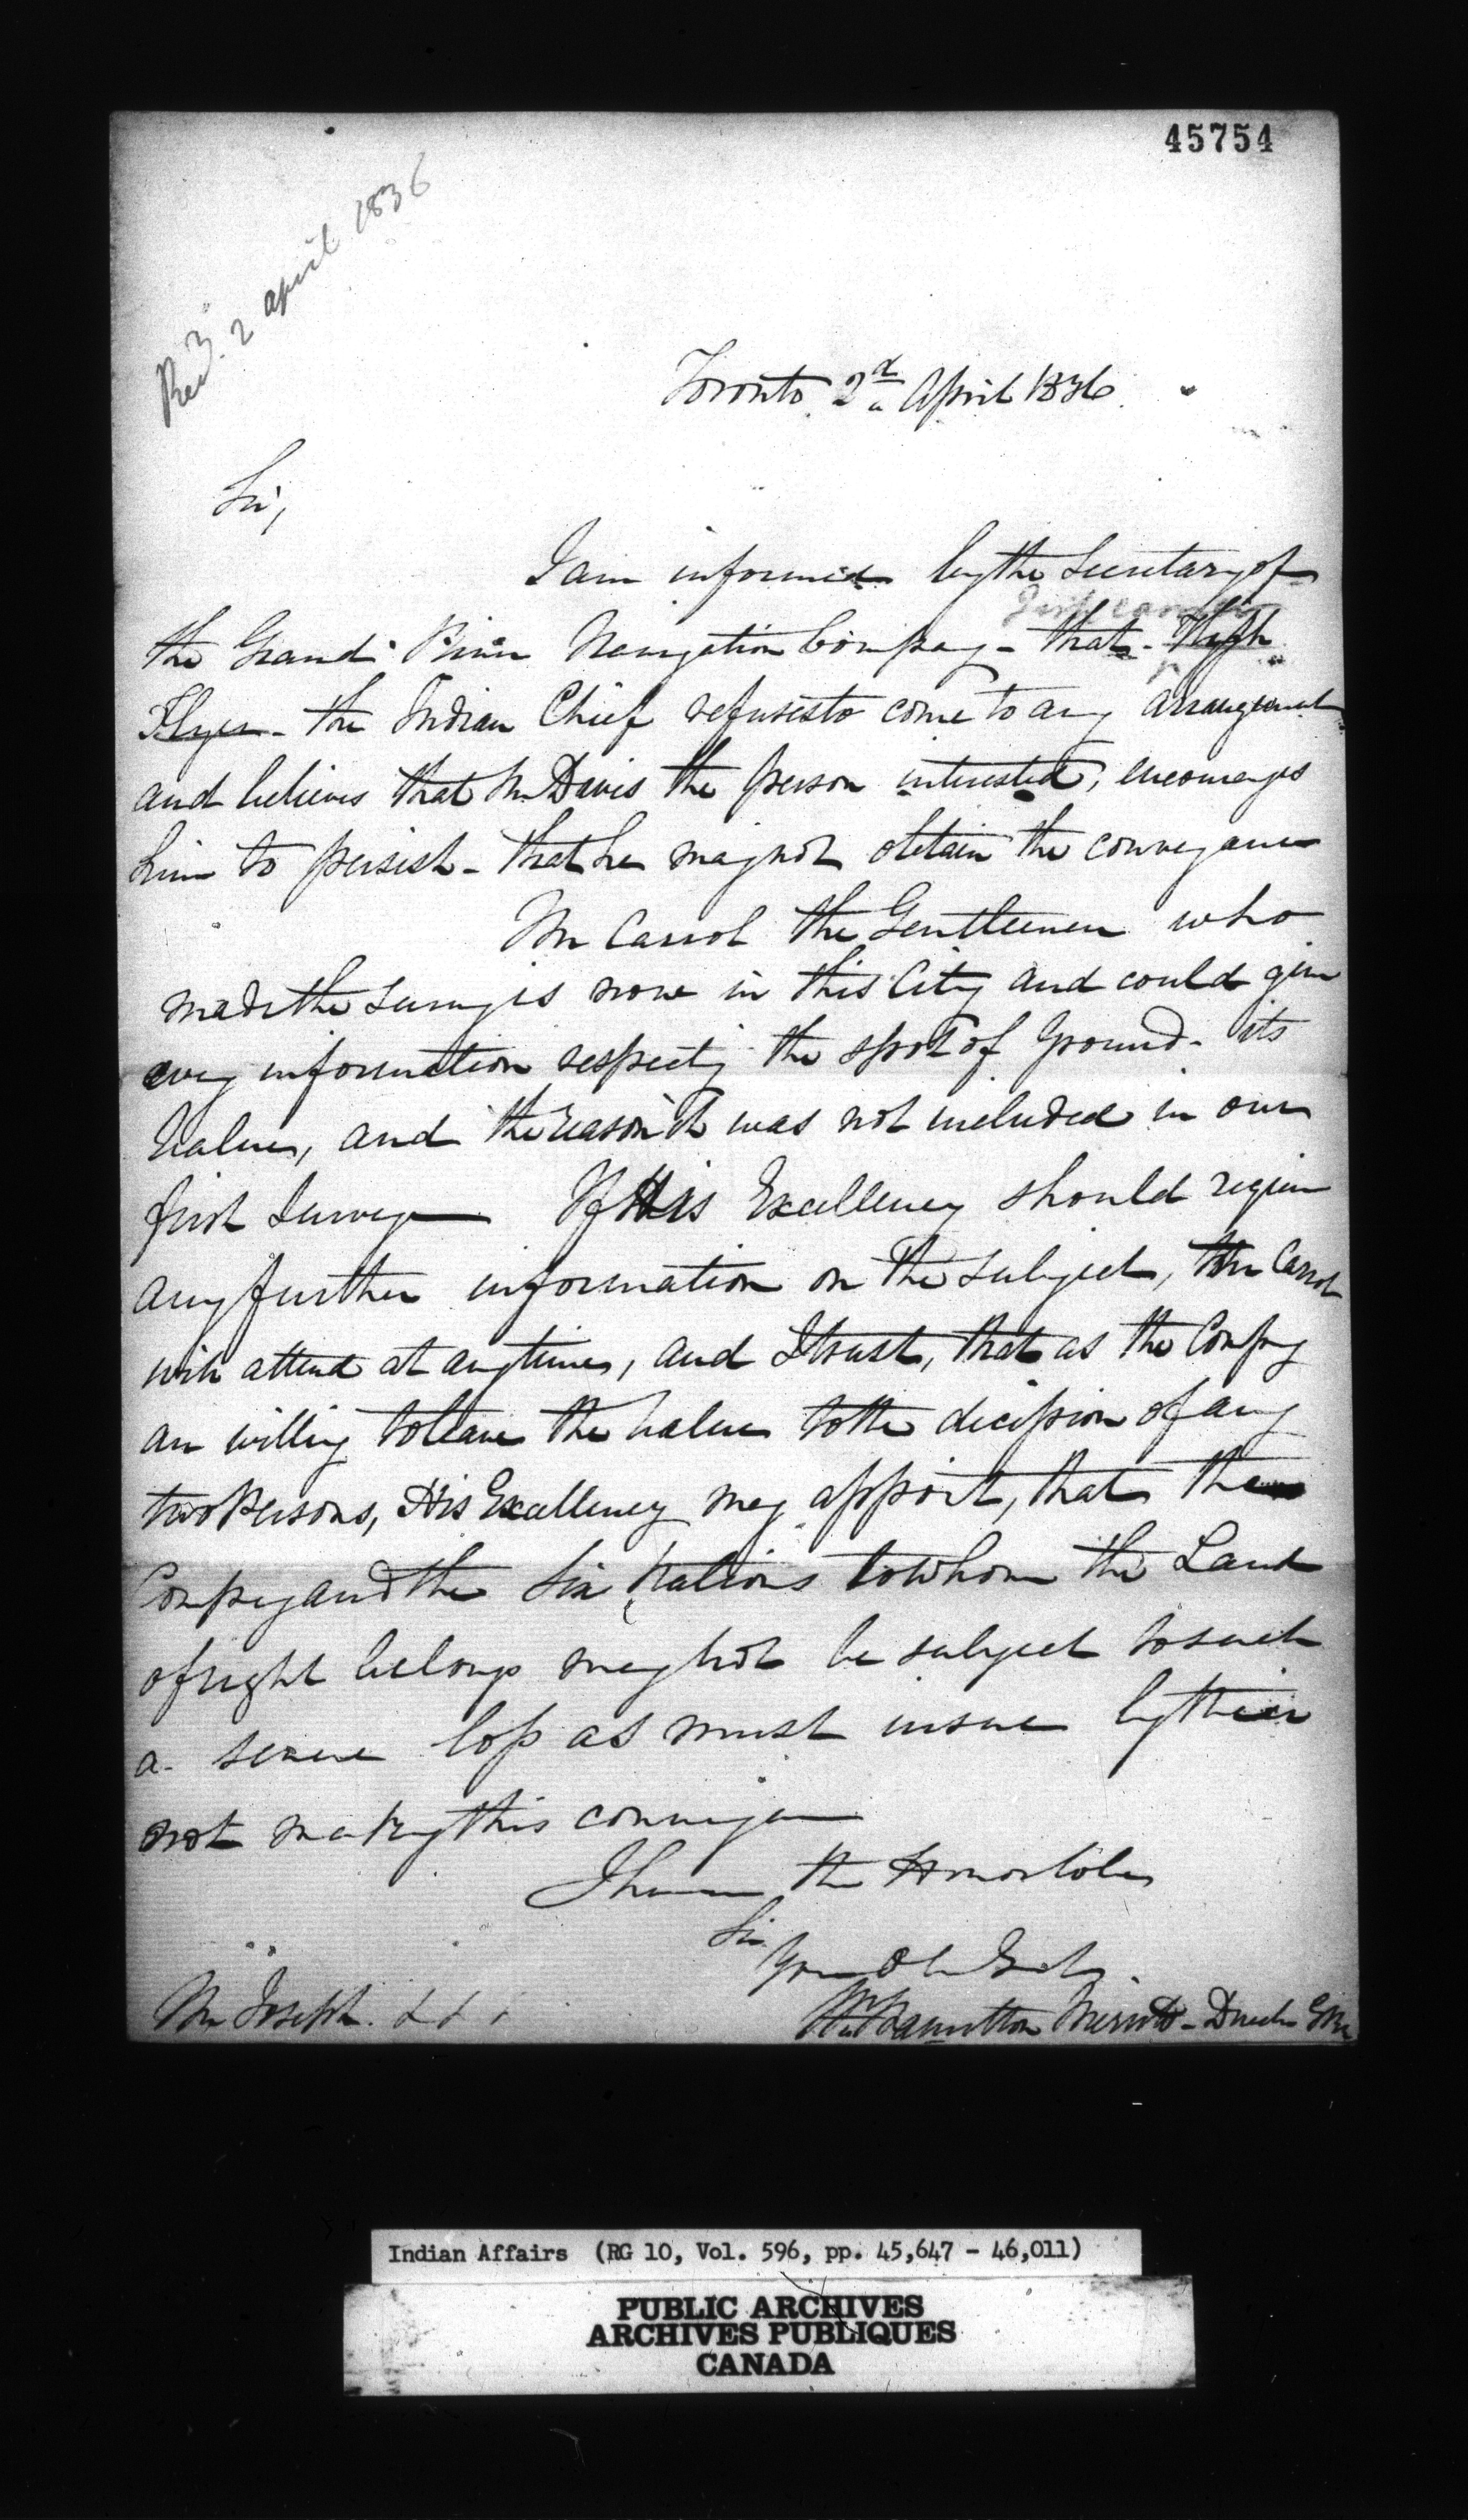 45754
Recd. 2 April 1836
Toronto 2d April 1836.
Sir,
I am informed by the Secretary of
the Grand River Navigation Company - that - High
Flyer - the Indian Chief refuses to come to any arrangement
and believes that Mr Davis the person interested, encourages
him to persist - that he may not obtain the conveyance
Mr Carrol the Gentlemen who
made the Survey is now in this City and could give
every information respecting the spot of Ground - its
Value, and the reason it was not included in our
first Survey If His Excellency should require
any further information on the subject, Mr Carrol
will attend at any time, and I trust, that as the Company
are willing to leave the value to the decission of any
two Persons, His Excellency may appoint, that the
Company and the Six Nations to whom the Land
of right belongs may not be subject to such
a severe loss as must insue by their
not making this conveyance
I have the Honor to be
Sir
Your Ob Sert
Wm Hamilton Merritt - Direct GR
Mr Joseph. &c &c
Indian Affairs (RG 10, Vol. 596, pp. 45,647 - 46,011)
PUBLIC ARCHIVES
ARCHIVES PUBLIQUES
CANADA